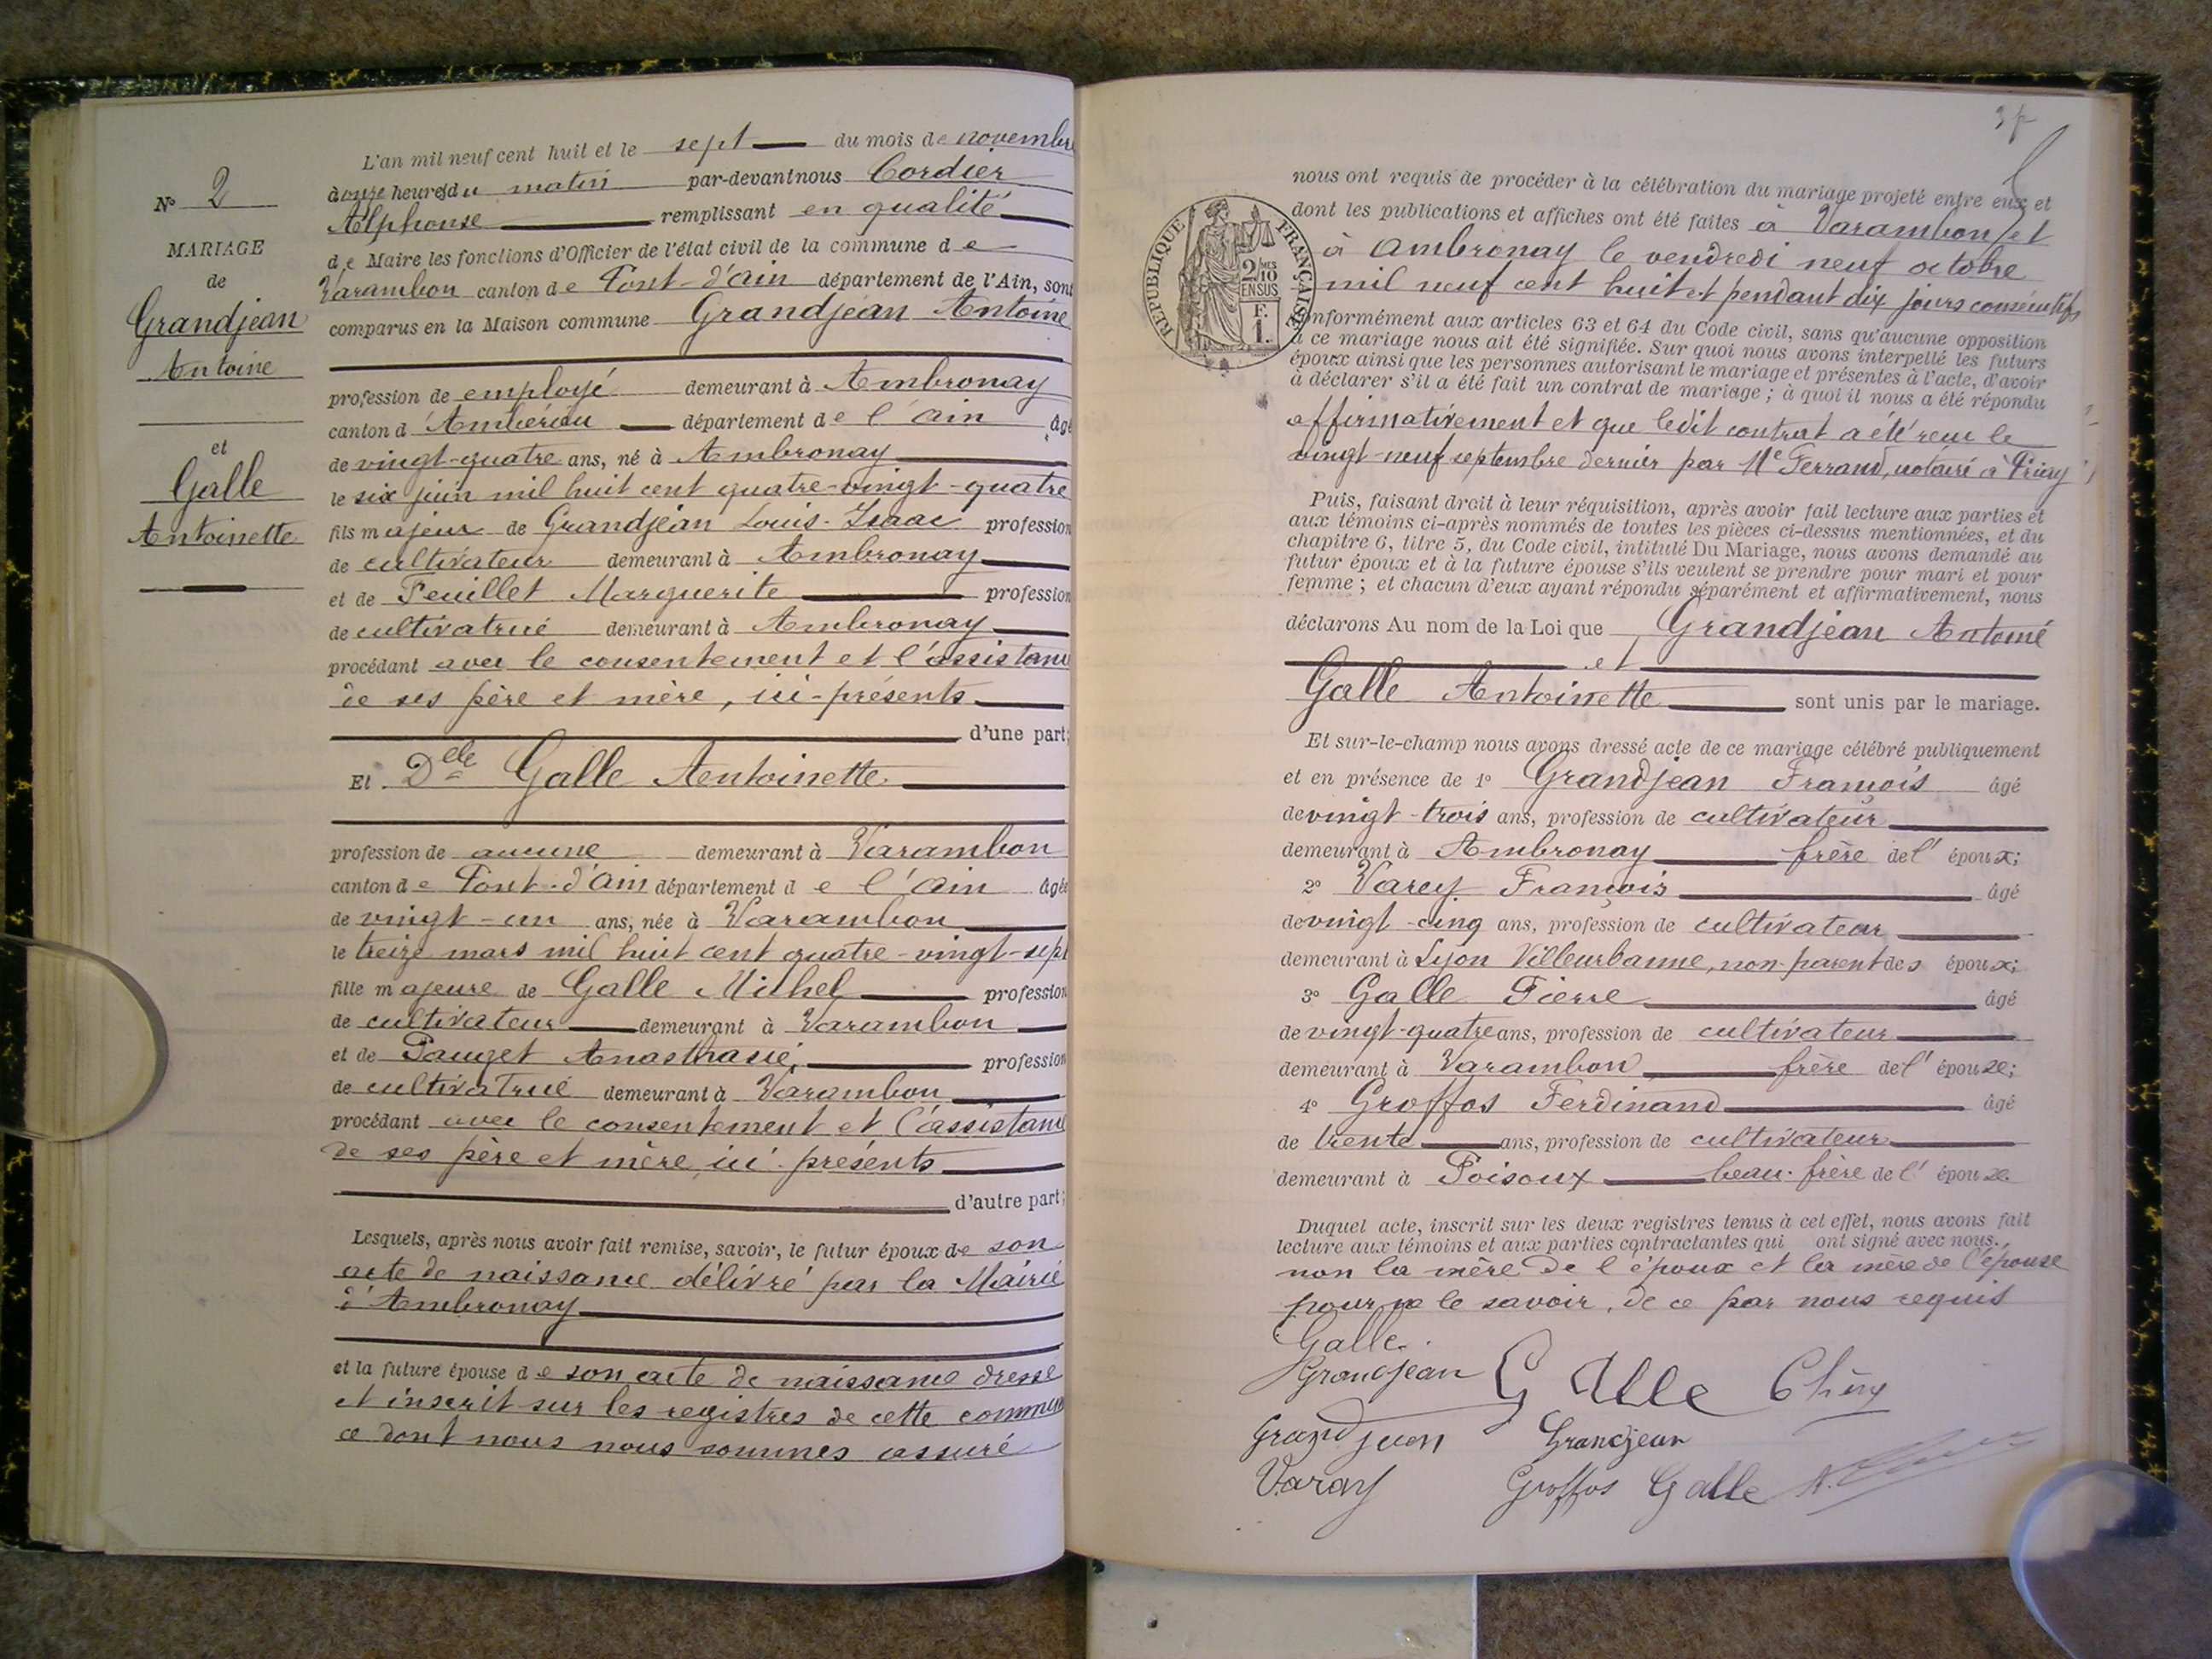 N° 2
MARIAGE
de
Grandjean
Antoine
et
Galle
Antoinette
L'an mil neuf cent huit et le sept du mois de novembre
à onze heures du matin par-devant nous Cordier
Alphonse remplissant en qualité
de Maire les fonctions d'Officier de l'état civil de la commune de
Varambon canton de Pont-d'Ain département de l'Ain, sont
comparus en la Maison commune Grandjean Antoine
profession de employé demeurant à Ambronay
canton d'Ambérieu département de l'Ain âgé
de vingt-quatre ans, né à Ambronay
le six juin mil huit cent quatre-vingt-quatre
fils majeur de Grandjean Louis-Isaac profession
de cultivateur demeurant à Ambronay
et de Feuillet Marguerite profession
de cultivatrice demeurant à Ambronay
procédant avec le consentement et l'assistance
de ses père et mère, ici-présents
d'une part;
Et Delle Galle Antoinette
profession de aucune demeurant à Varambon
canton de Pont-d'Ain département de l'Ain âgée
de vingt-un ans, née à Varambon
le treize mars mil huit cent quatre-vingt-sept
fille majeure de Galle Michel profession
de cultivateur demeurant à Varambon
et de Pauget Anasthasie, profession
de cultivatrice demeurant à Varambon
procédant avec le consentement et l'assistance
de ses père et mère, ici-présents
d'autre part;
Lesquels, après nous avoir fait remise, savoir, le futur époux de son
acte de naissance délivré par la Mairie
d'Ambronay
et la future épouse de son acte de naissance dressé
et inscrit sur les registres de cette commune
ce dont nous nous sommes assuré
RÉPUBLIQUE FRANÇAISE
2/10 EN SUS
F. 1.
nous ont requis de procéder à la célébration du mariage projeté entre eux et
dont les publications et affiches ont été faites à Varambon et
à Ambronay le vendredi neuf octobre
mil neuf cent huit et pendant dix jours consécutifs
conformément aux articles 63 et 64 du Code civil, sans qu'aucune opposition
à ce mariage nous ait été signifiée. Sur quoi nous avons interpellé les futurs
époux ainsi que les personnes autorisant le mariage et présentes à l'acte, d'avoir
à déclarer s'il a été fait un contrat de mariage ; à quoi il nous a été répondu
affirmativement et que ledit contrat a été reçu le
vingt-neuf septembre dernier par Me Ferrand, notaire à Priay
Puis, faisant droit à leur réquisition, après avoir fait lecture aux parties et
aux témoins ci-après nommés de toutes les pièces ci-dessus mentionnées, et du
chapitre 6, titre 5, du Code civil, intitulé Du Mariage, nous avons demandé au
futur époux et à la future épouse s'ils veulent se prendre pour mari et pour
femme ; et chacun d'eux ayant répondu séparément et affirmativement, nous
déclarons Au nom de la Loi que Grandjean Antoine
et
Galle Antoinette sont unis par le mariage.
Et sur-le-champ nous avons dressé acte de ce mariage célébré publiquement
et en présence de 1° Grandjean François âgé
de vingt-trois ans, profession de cultivateur
demeurant à Ambronay frère de l'époux;
2° Varey François âgé
de vingt-cinq ans, profession de cultivateur
demeurant à Lyon Villeurbanne, non-parent des époux;
3° Galle Pierre âgé
de vingt-quatre ans, profession de cultivateur
demeurant à Varambon frère de l'épouse;
4° Groffos Ferdinand âgé
de trente ans, profession de cultivateur
demeurant à Poisoux beau-frère de l'épouse.
Duquel acte, inscrit sur les deux registres tenus à cet effet, nous avons fait
lecture aux témoins et aux parties contractantes qui ont signé avec nous.
non la mère de l'époux et la mère de l'épouse
pour ne le savoir, de ce par nous requis
Galle
Grandjean Galle
Grandjean Grandjean
Varey Groffos Galle